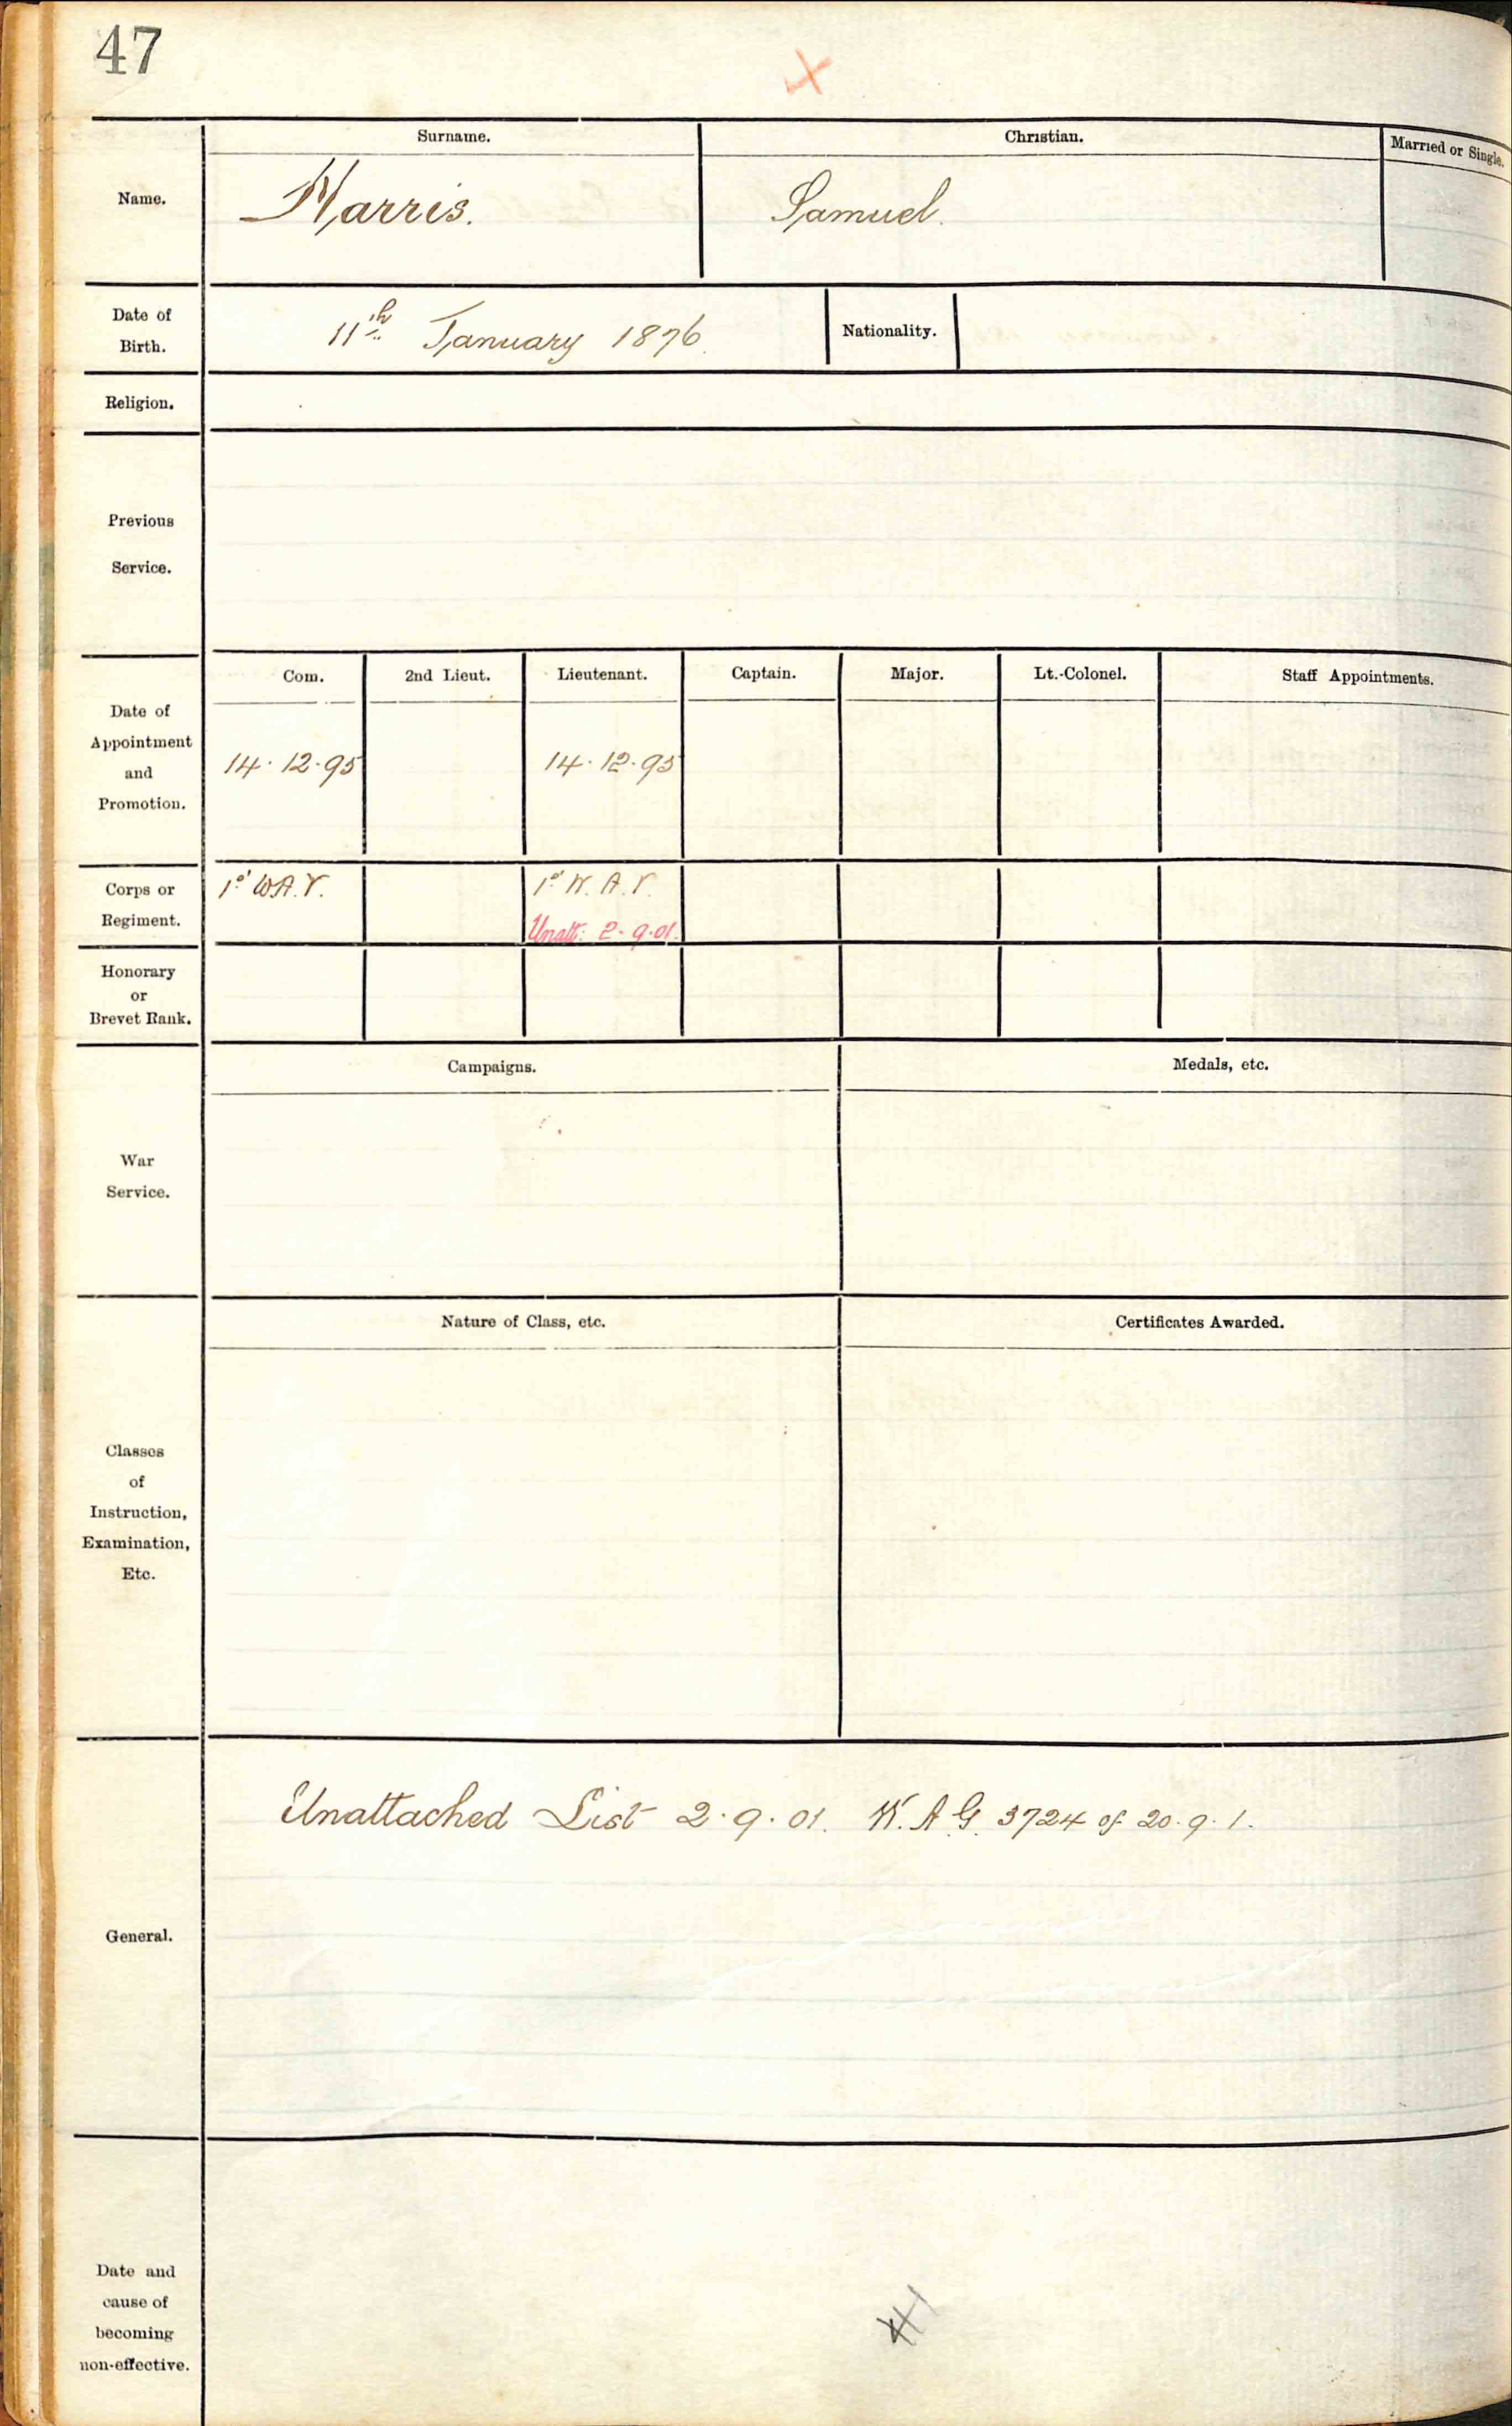 47
Surname.
Christian.
Married or Single.
Name.
Harris.
Samuel.
Date of
Birth.
11th January 1876.
Nationality.
Religion.
Previous
Service.
Com.
2nd Lieut.
Lieutenant.
Captain.
Major.
Lt.-Colonel.
Staff Appointments.
Date of
Appointment
and
Promotion.
14.12.95
14.12.95
Corps or
Regiment.
1st W.A.V.
1st W.A.V.
Unatt: 2.9.01.
Honorary
or
Brevet Rank.
Campaigns.
Medals, etc.
War
Service.
Nature of Class, etc.
Certificates Awarded.
Classes
of
Instruction,
Examination,
Etc.
General.
Unattached List 2.9.01. W.A.G. 3724 of 20.9.1.
Date and
cause of
becoming
non-effective.